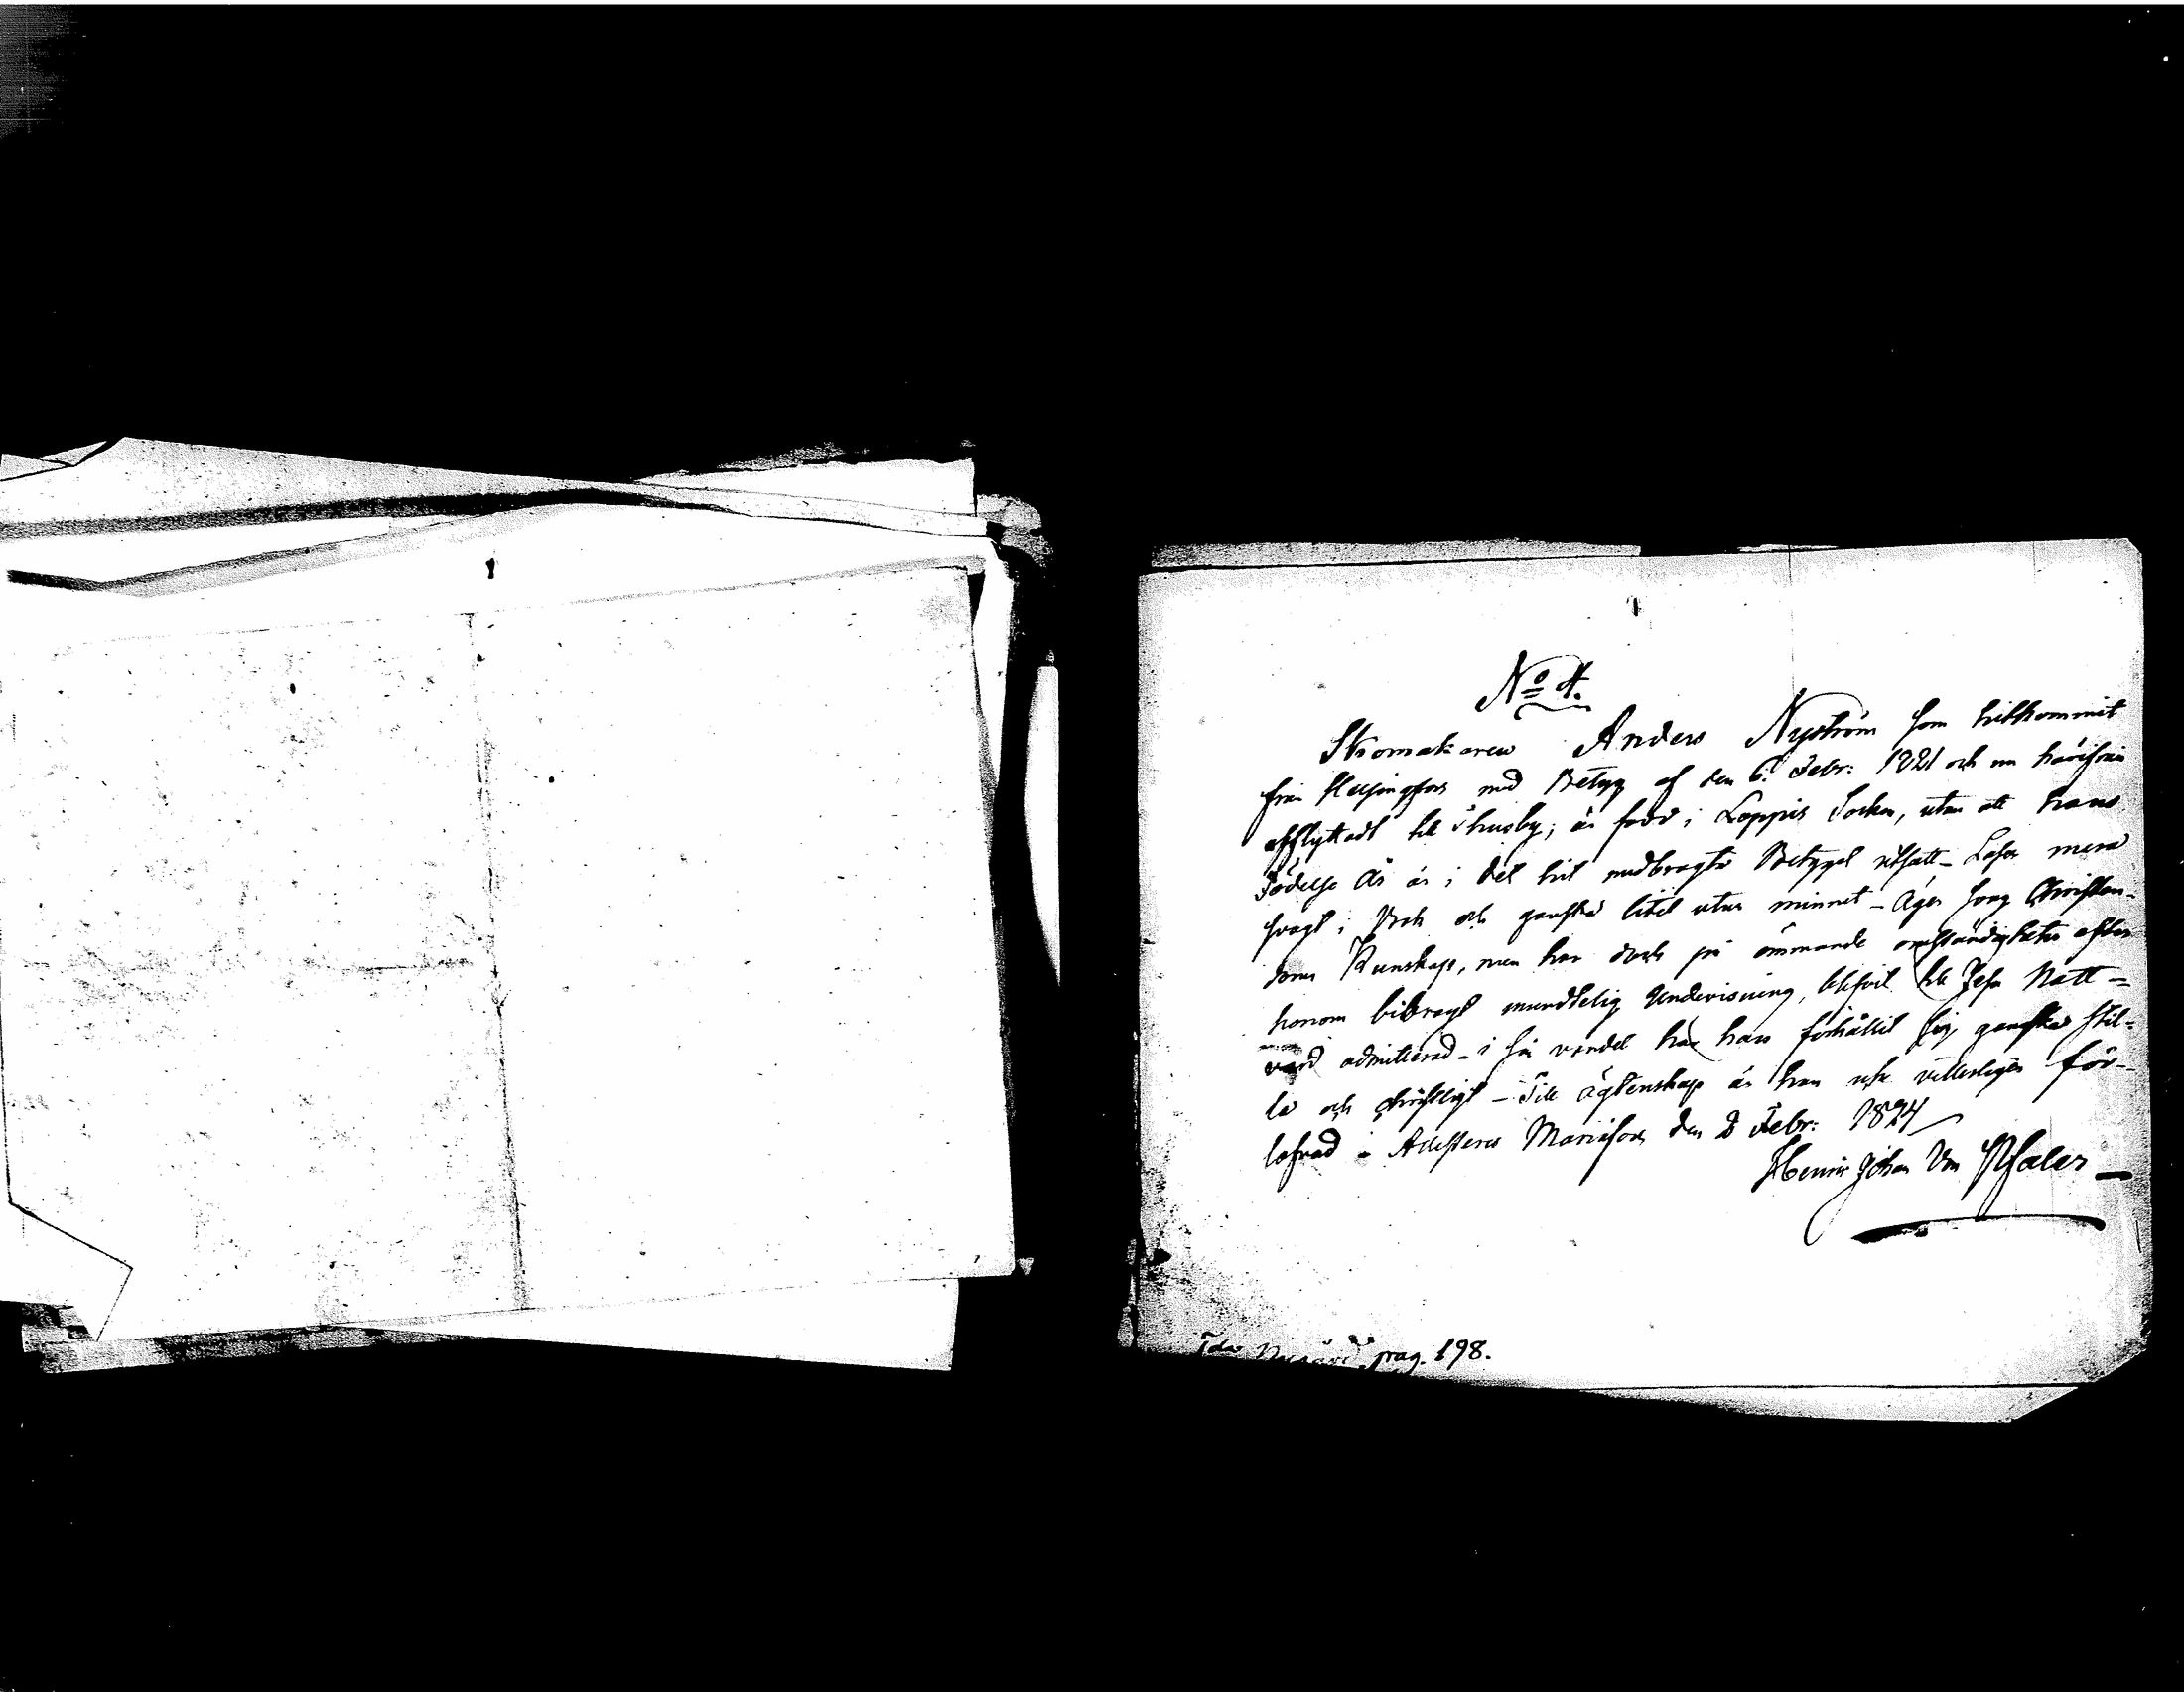 No 4.
Skomakaren Anders Nyström som hitkommit
från Helsingfors med Betyg af den 6. Febr: 1821 och nu härifrån
afflyttadt till Thusby; är född i Loppis Socken, utan att hans
Födelse År är i det hit medbragte Betyget utsatt - Läser mera
svagt i Bok och ganska litet utur minnet - Äger svag Christen-
doms Kunskap, men har dock på ömmande omständigheter efter
honom bibragt mundtelig Undervisning, blifvit till Jesu Natt=
vard admitterad - i sin vandel har han förhållit sig ganska stil=
la och christligt - Till ägtenskap är han icke vitterligen för-
lofvad - Attesteras Mariæfors den 2 Febr: 1824
Henric Johan Von Pfaler
pag. 198.